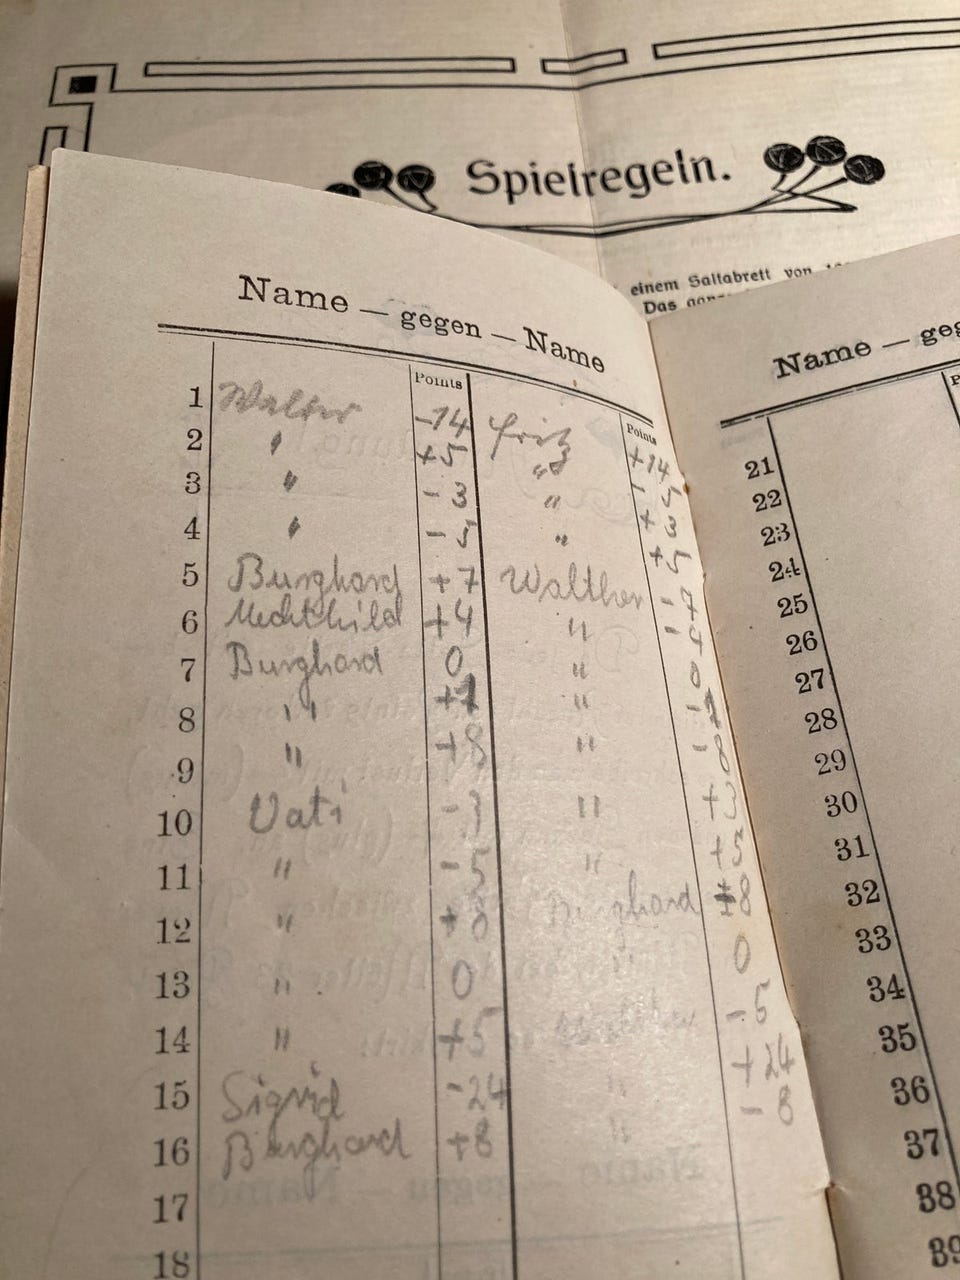 Spielregeln.
einem Saltabrett von
Das
Name — gegen — Name
Points
Points
1 Walter -14 Fritz +14
2 " +5 " - 5
3 " - 3 " + 3
4 " - 5 " + 5
5 Burghard +7 Walther - 7
6 Mechthild +4 " - 4
7 Burghard 0 " 0
8 " "
9 " +8 " - 8
10 Vati - 3 " +3
11 " - 5 " +5
12 " Burghard 8
13 " 0 " 0
14 " +5 - 5
15 Sigrid -24 " +24
16 Burghard +8 " - 8
17
18
Name —
21
22
23
24
25
26
27
28
29
30
31
32
33
34
35
36
37
38
39